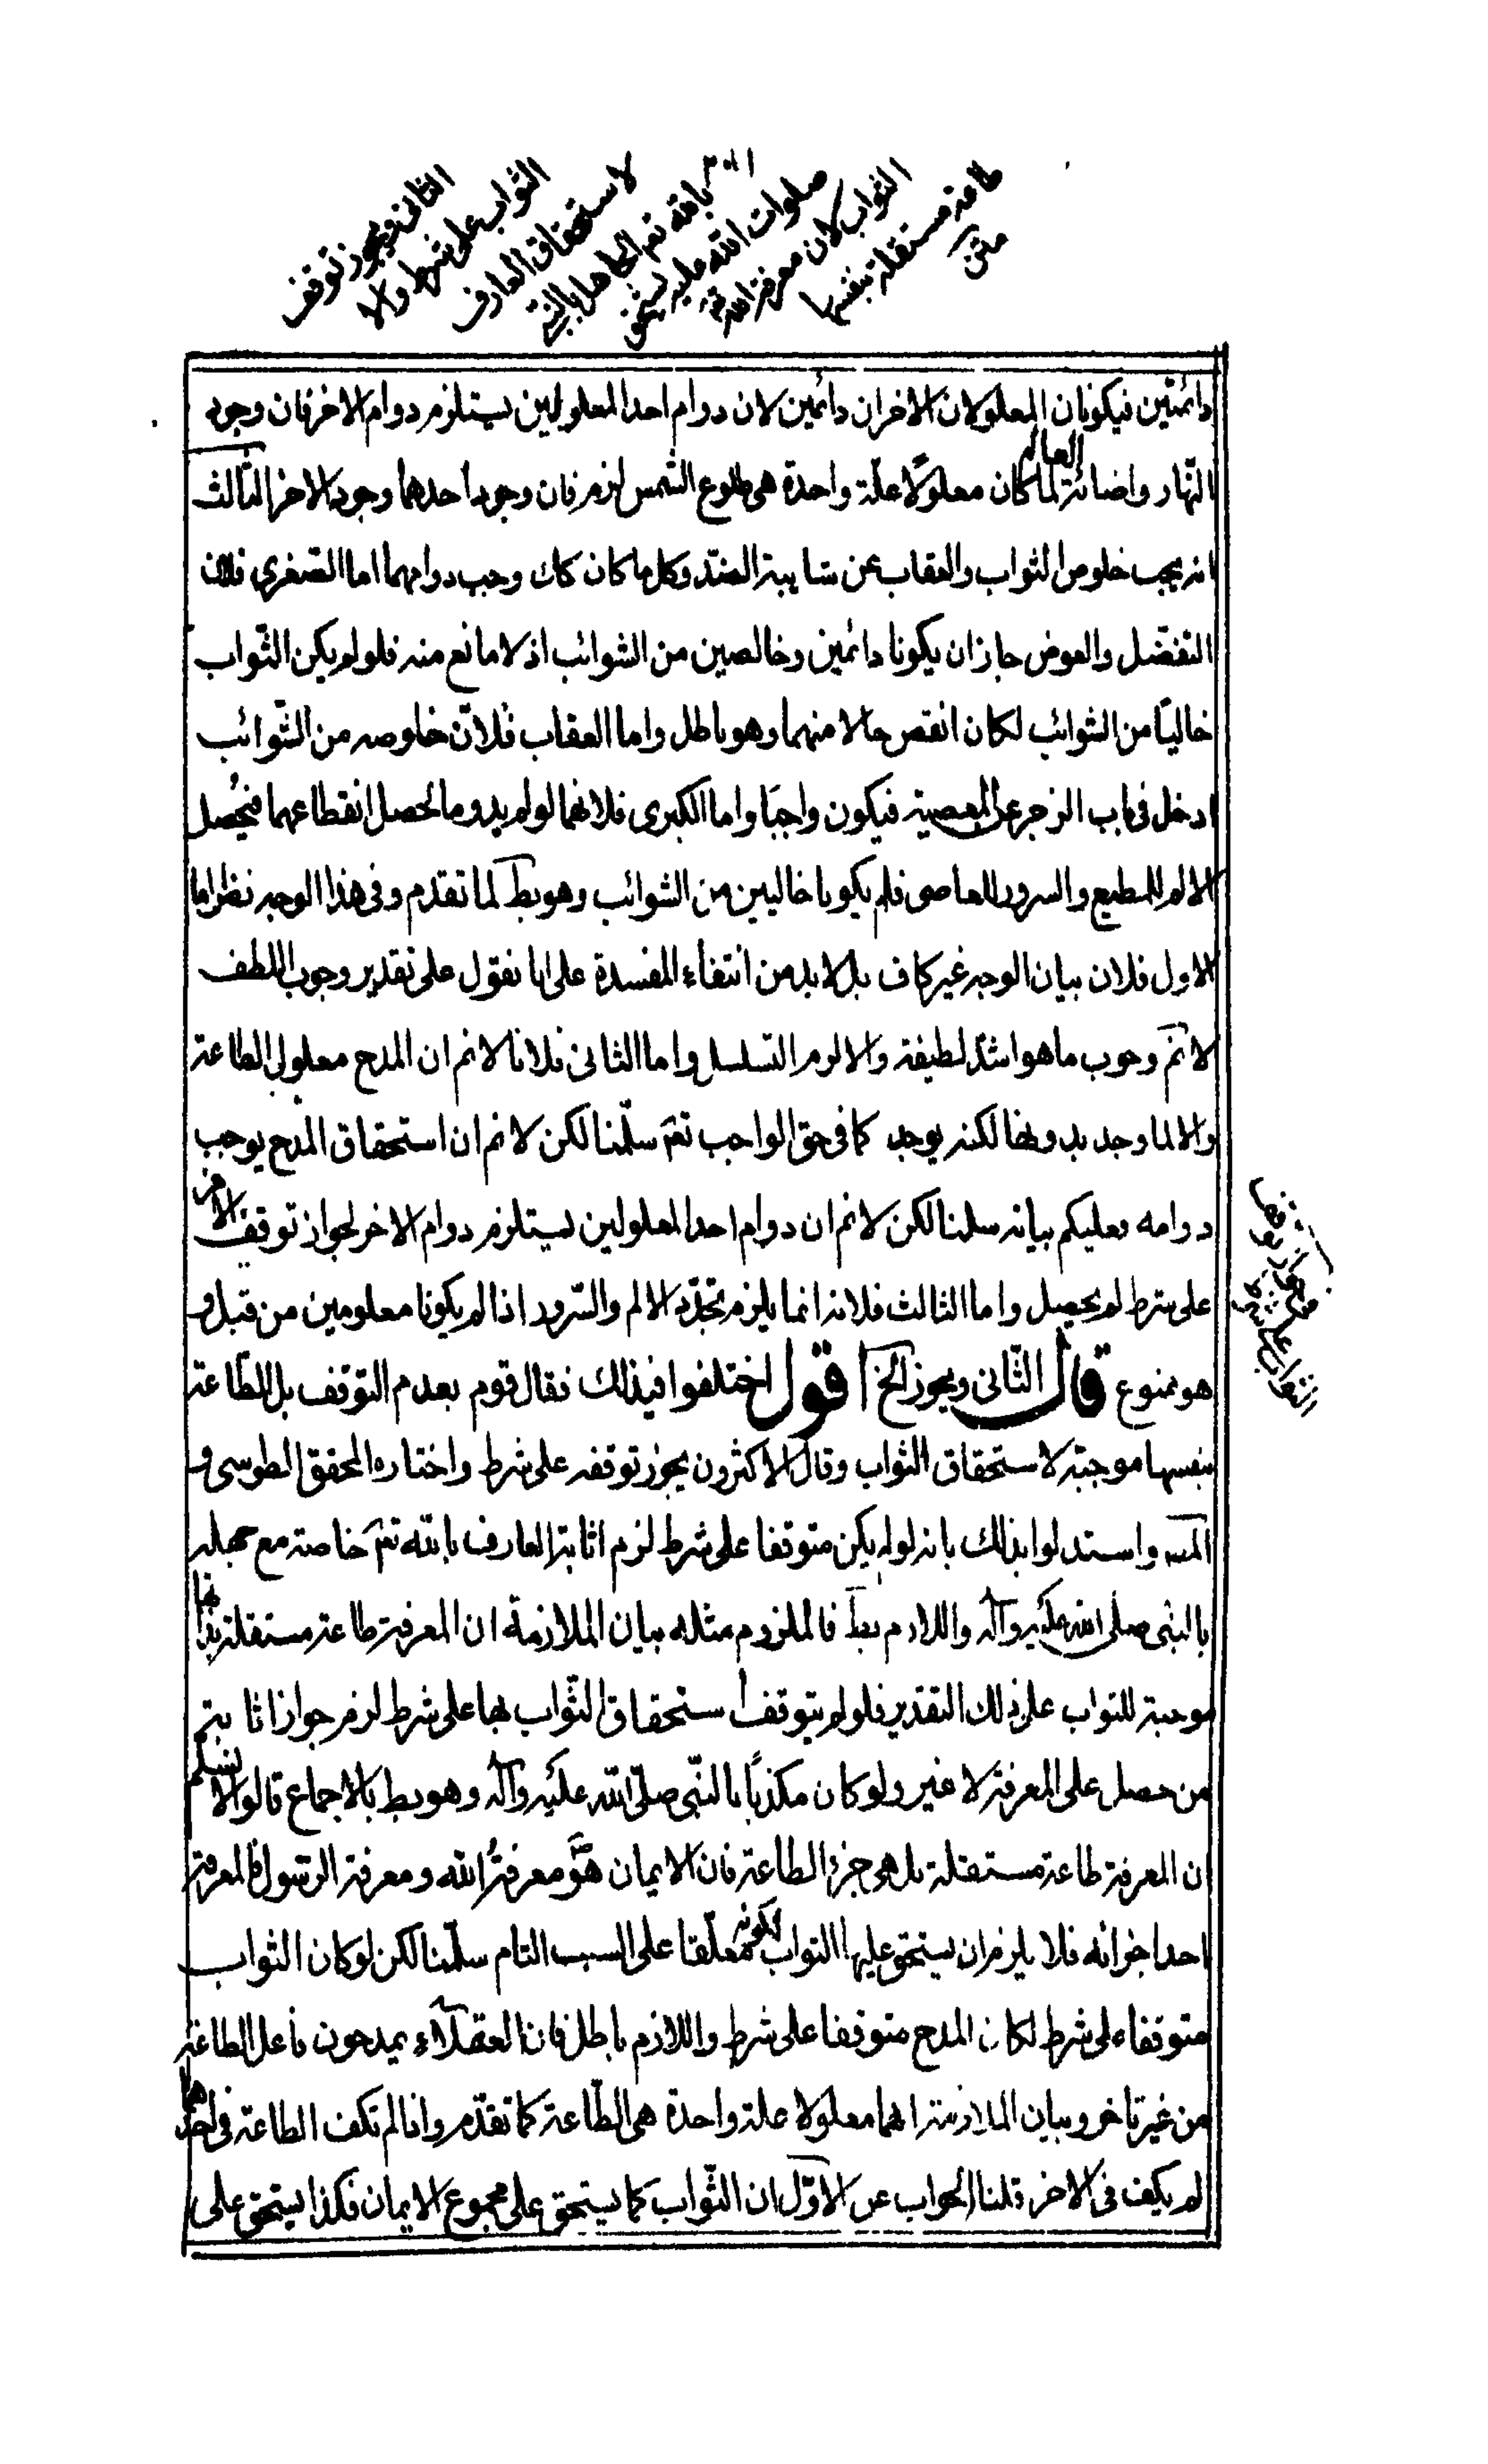 الثانى ويجوز توقف
الثواب على شرط والا
لاستحقاق العارف
بالله تعم الجاهل بالنبى
صلوات الله عليه يستحق
الثواب لان معرفة الله تع
طاعة مستقلة بنفسها
متن
دائمتين فيكونان المعلولان الاخران دائمين لان دوام احد المعلولين يستلزم دوام الاخر فان وجود
النهار واضائة العالم لما كان معلولا علة واحدة هى طلوع الشمس لزم فان وجود احدهما وجود الاخر الثالث
انه يجب خلوص الثواب والعقاب عن شايبة الضد وكل ما كان كك وجب دوامهما اما الصغرى فلان
التفضل والعوض جاز ان يكونا دائمين وخالصين من الشوائب اذ لا مانع منه فلو لم يكن الثواب
خاليا من الشوائب لكان انقص حالا منهما وهو باطل واما العقاب فلان خلوصه من الشوائب
ادخل فى باب الزجر عن المعصية فيكون واجبا واما الكبرى فلانهما لو لم يدوما لحصل انقطاعهما فيحصل
الالم للمطيع والسرور للعاصى فلم يكونا خاليين من الشوائب وهو بط لما تقدم وفى هذا الوجه نظر اما
الاول فلان بيان الوجه غير كاف بل لا بد من انتفاء المفسدة على انا نقول على تقدير وجوب اللطف
لا نم وجوب ما هو اشد لطيفة والا لزم التسلسل واما الثانى فلانا لا نم ان المدح معلول الطاعة
والا لما وجد بدونها لكنه يوجد كما فى حق الواجب تعم سلمنا لكن لا نم ان استحقاق المدح يوجب
دوامه فعليكم بيانه سلمنا لكن لا نم ان دوام احد المعلولين يستلزم دوام الاخر لجواز توقف الاخر
على شرط لم يحصل واما الثالث فلانه انما يلزم تجدد الالم والسرور اذا لم يكونا معلومين من قبل و
هو ممنوع قال الثانى ويجوز الخ اقول اختلفوا فى ذلك فقال قوم بعدم التوقف بل الطاعة
بنفسها موجبة لاستحقاق الثواب وقال الاكثرون يجوز توقفه على شرط واختاره المحقق الطوسى و
المص واستدلوا بذلك بانه لو لم يكن متوقفا على شرط لزم اثابة العارف بالله تعم خاصة مع جهله
بالنبى صلى الله عليه وآله واللازم بط فالملزوم مثله بيان الملازمة ان المعرفة طاعة مستقلة بذاتها
موجبة للثواب على ذلك التقدير فلو لم يتوقف استحقاق الثواب بها على شرط لزم جواز اثابة
من حصل على المعرفة لا غير ولو كان مكذبا بالنبى صلى الله عليه وآله وهو بط بالاجماع قالوا لا نسلم
ان المعرفة طاعة مستقلة بل هو جزء الطاعة فان الايمان هو معرفة الله ومعرفة الرسول فالمعرفة
احد اجزائه فلا يلزم ان يستحق عليها الثواب لكونه معلقا على السبب التام سلمنا لكن لو كان الثواب
متوقفا على شرط لكان المدح متوقفا على شرط واللازم باطل فان العقلاء يمدحون فاعل الطاعة
من غير تاخر وبيان الملازمة انهما معلولا علة واحدة هى الطاعة كما تقدم واذا لم تكف الطاعة فى احدهما
لم يكف فى الاخر قلنا الجواب عن الاول ان الثواب كما يستحق على مجموع الايمان فكذا يستحق على